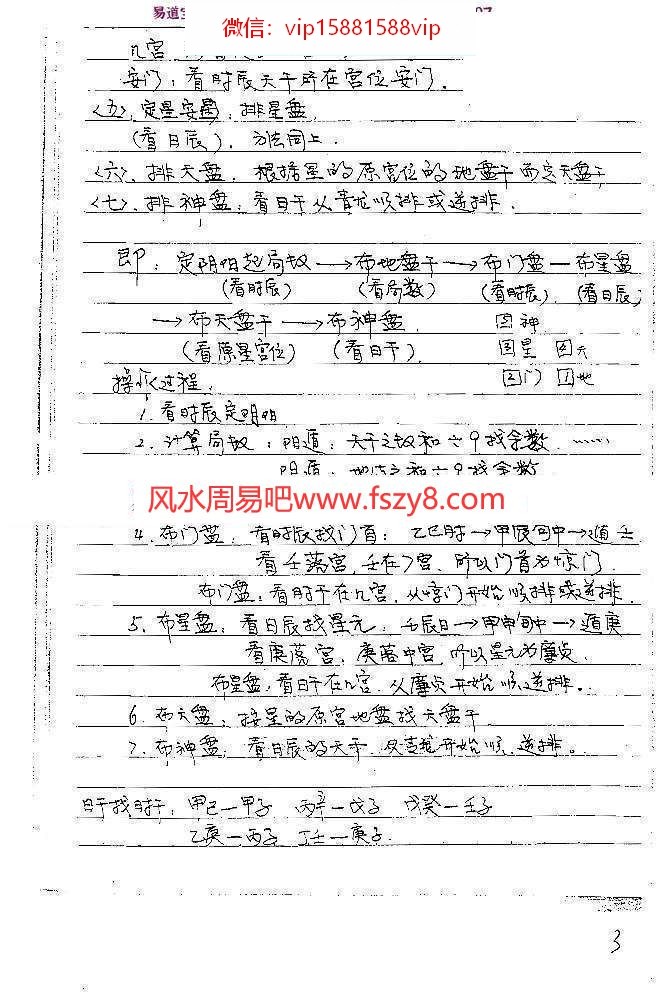 易道
微信：vip15881588vip
九宫
安门：看时辰天干所在宫位安门。
〈五〉定星安 排星盘
(看日辰)，方法同上。
〈六〉排天盘，根据星的原宫位的地盘干而定天盘干
〈七〉排神盘：看日干从青龙顺排或逆排。
即：定阴阳起局数→布地盘干→布门盘—布星盘
(看时辰) (看局数) (看时辰) (看日辰)
→布天盘干→布神盘 神
(看原星宫位) (看日干) 星 天
门 地
操作过程：
1. 看时辰定阴阳
2. 计算局数：阳遁：天干之数和÷9找余数……
地支之和÷9找余数
风水周易吧www.fszy8.com
4. 布门盘：看时辰找门首：乙巳时→甲辰旬中→遁壬
看壬落宫，壬在7宫，所以门首为惊门
布门盘：看时干在几宫，从惊门开始顺排或逆排
5. 布星盘：看日辰找星元，壬辰日→甲申旬中→遁庚
看庚落宫，庚落中宫，所以星元为廉贞
布星盘，看日干在几宫，从廉贞开始顺、逆排。
6. 布天盘：按星的原宫地盘找天盘干
7. 布神盘：看日辰的天干，从青龙开始顺、逆排。
日干找时干，甲己—甲子 丙辛—戊子 戊癸—壬子
乙庚—丙子 丁壬—庚子
3